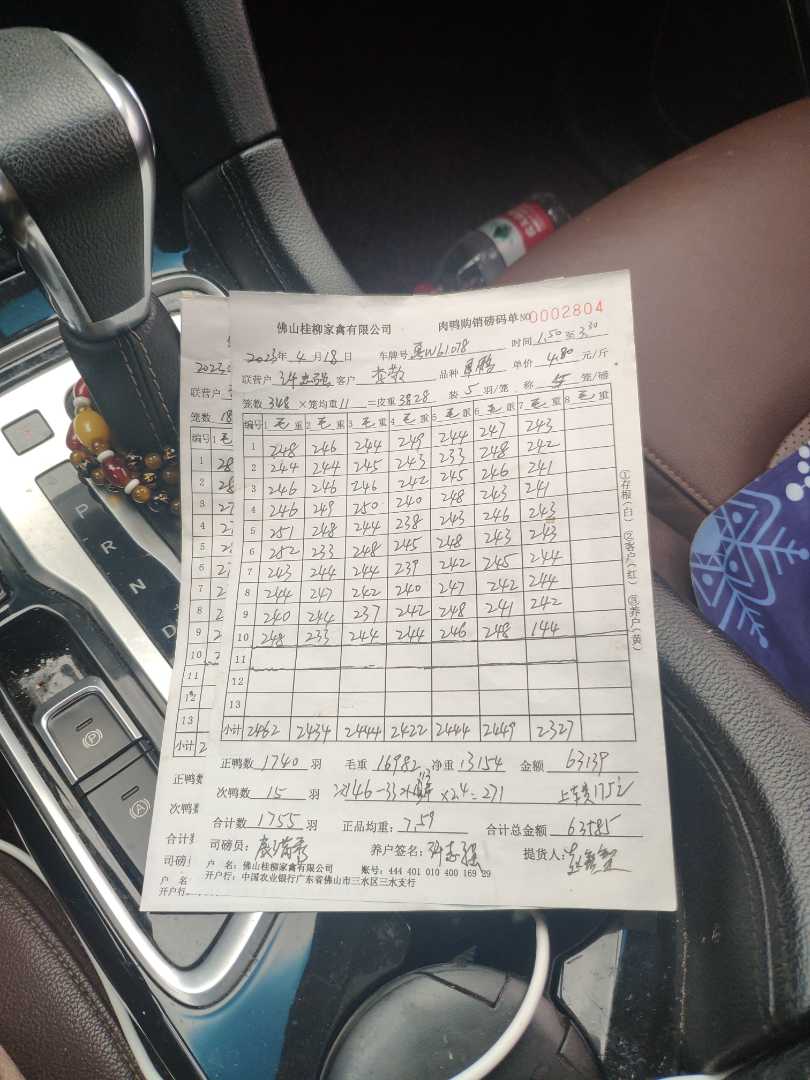 佛山桂柳家禽有限公司 肉鸭购销磅码单 NO 0002804
2023年 4月18日 车牌号 W61078 时间 1.50 至 3.30
联营户 客户 品种 单价 4.80 元/斤
笼数 348 ×笼均重 11 =皮重 3828 装 5 羽/笼 称 5 笼/磅
编号 1 毛 重 2 毛 重 3 毛 重 4 毛 重 5 毛 重 6 毛 重 7 毛 重 8 毛 重
1 248 246 244 249 244 247 243
2 244 244 245 243 233 248 242
3 246 246 246 242 245 246 241
4 246 249 250 240 248 243 241
5 251 248 244 238 243 246 243
6 252 233 248 245 248 243 243
7 243 244 244 239 242 245 244
8 244 247 242 240 247 242 244
9 240 244 237 242 248 241 242
10 248 233 244 244 246 248 144
11
12
13
小计 2462 2434 2444 2422 2444 2449 2327
正鸭数 1740 羽 毛重 16982 净重 13154 金额 63139
次鸭数 15 羽 146-33 113 ×2.4=271 175
合计数 1755 羽 正品均重: 7.59 合计总金额 63585
司磅员: 养户签名: 提货人:
户 名: 佛山桂柳家禽有限公司 账号: 444 401 010 400 169 29
开户行: 中国农业银行广东省佛山市三水区三水支行
①存根(白) ②客户(红) ③养户(黄)
联营户
笼数 18
编号 1
1
2
3
4
5
6
7
8
9
10
11
12
13
小计 2
正鸭数
次鸭数
合计
司磅
户 名
开户行
P
R
N
D
(P)
(A)